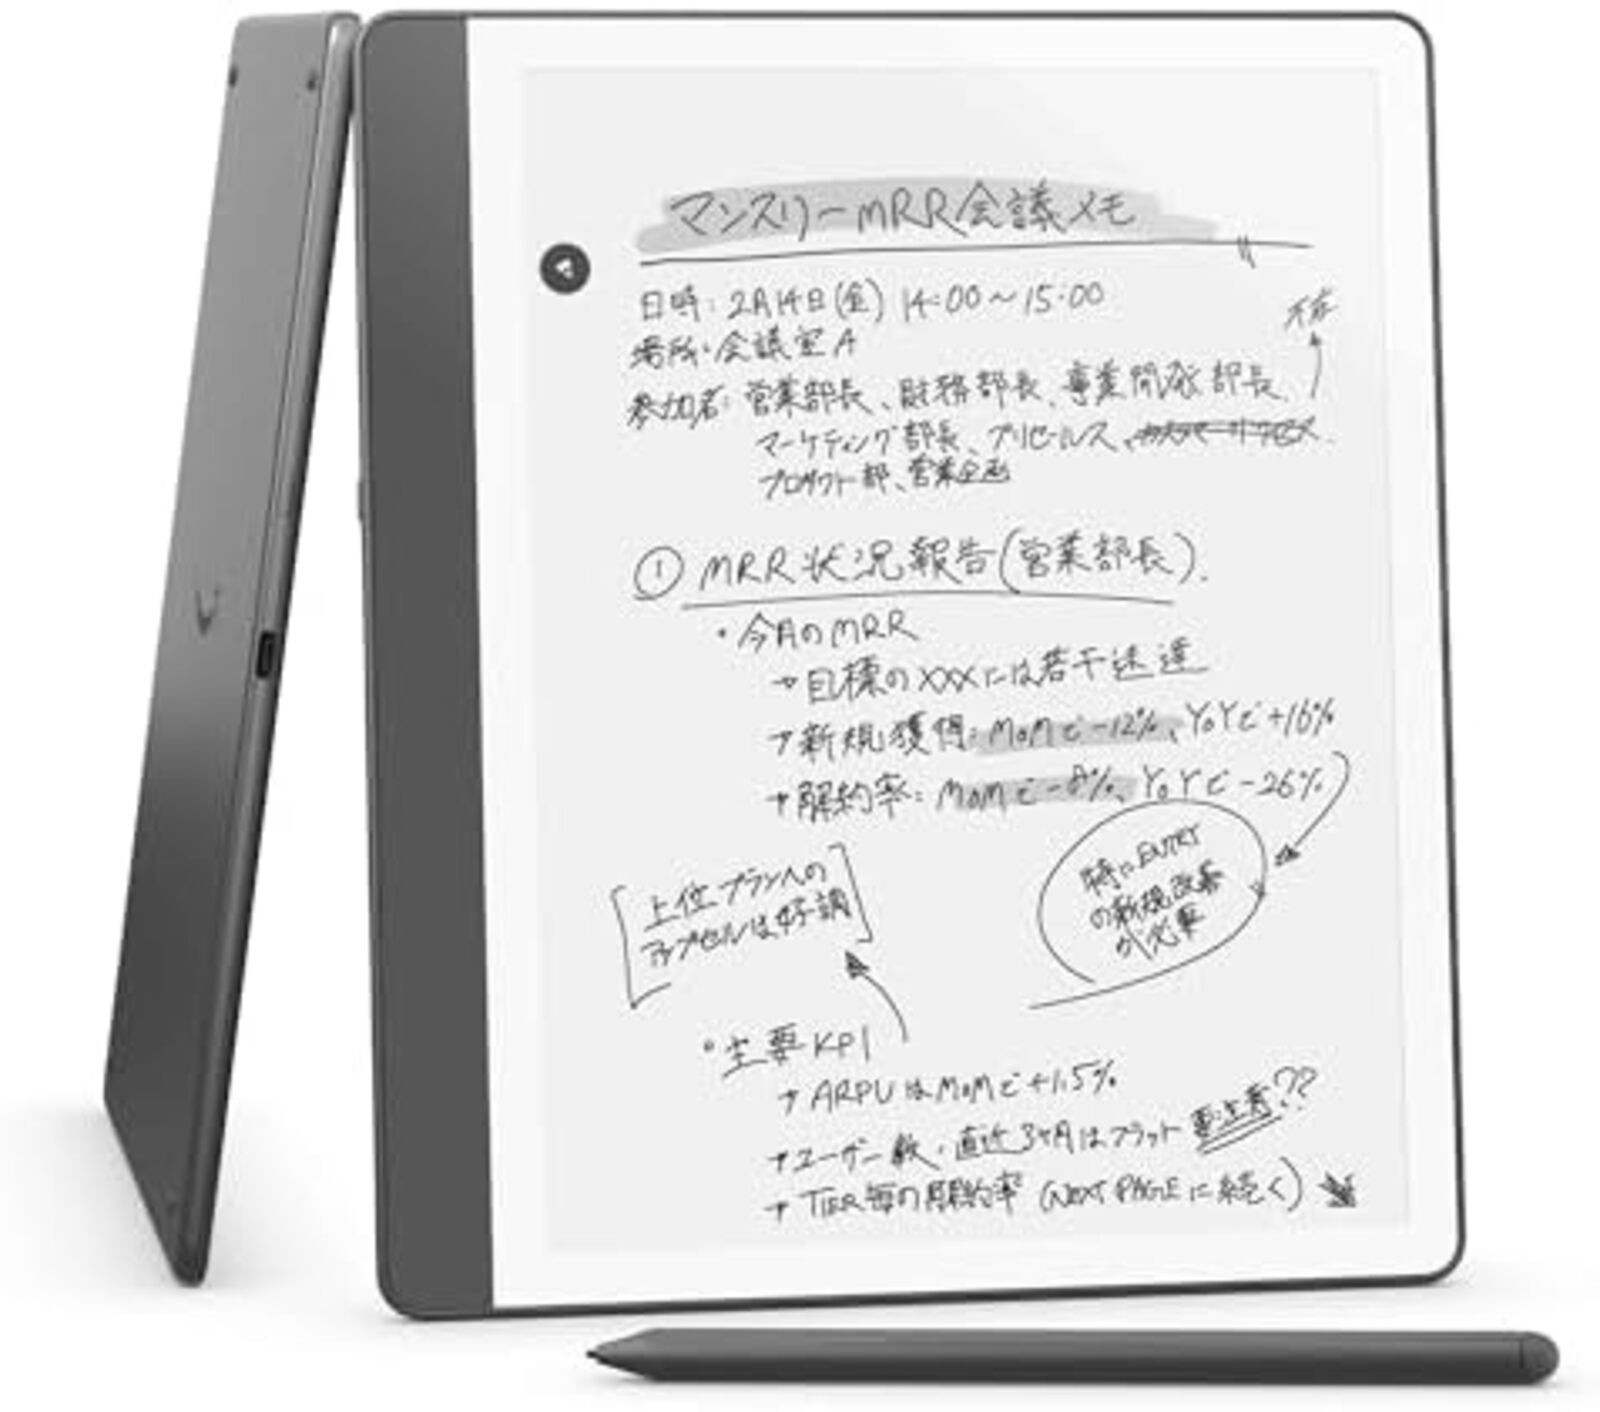 マンスリーMRR会議メモ
日時：2月14日(金) 14:00～15:00
場所：会議室A
不在
参加者：営業部長、財務部長、事業開発部長、
マーケティング部長、プリセールス、
プロダクト部、営業企画
① MRR状況報告(営業部長)
・今月のMRR
→目標のXXXには若干未達
→新規獲得：MoMで-12%、YoYで+16%
→解約率：MoMで-8%、YoYで-26%
特にENTRY
の新規改善
が必要
上位プランへの
アップセルは好調
・主要KPI
→ARPUはMoMで+1.5%
→ユーザー数・直近3ヶ月はフラット 要注意??
→TIER毎の解約率 (NEXT PAGEに続く)